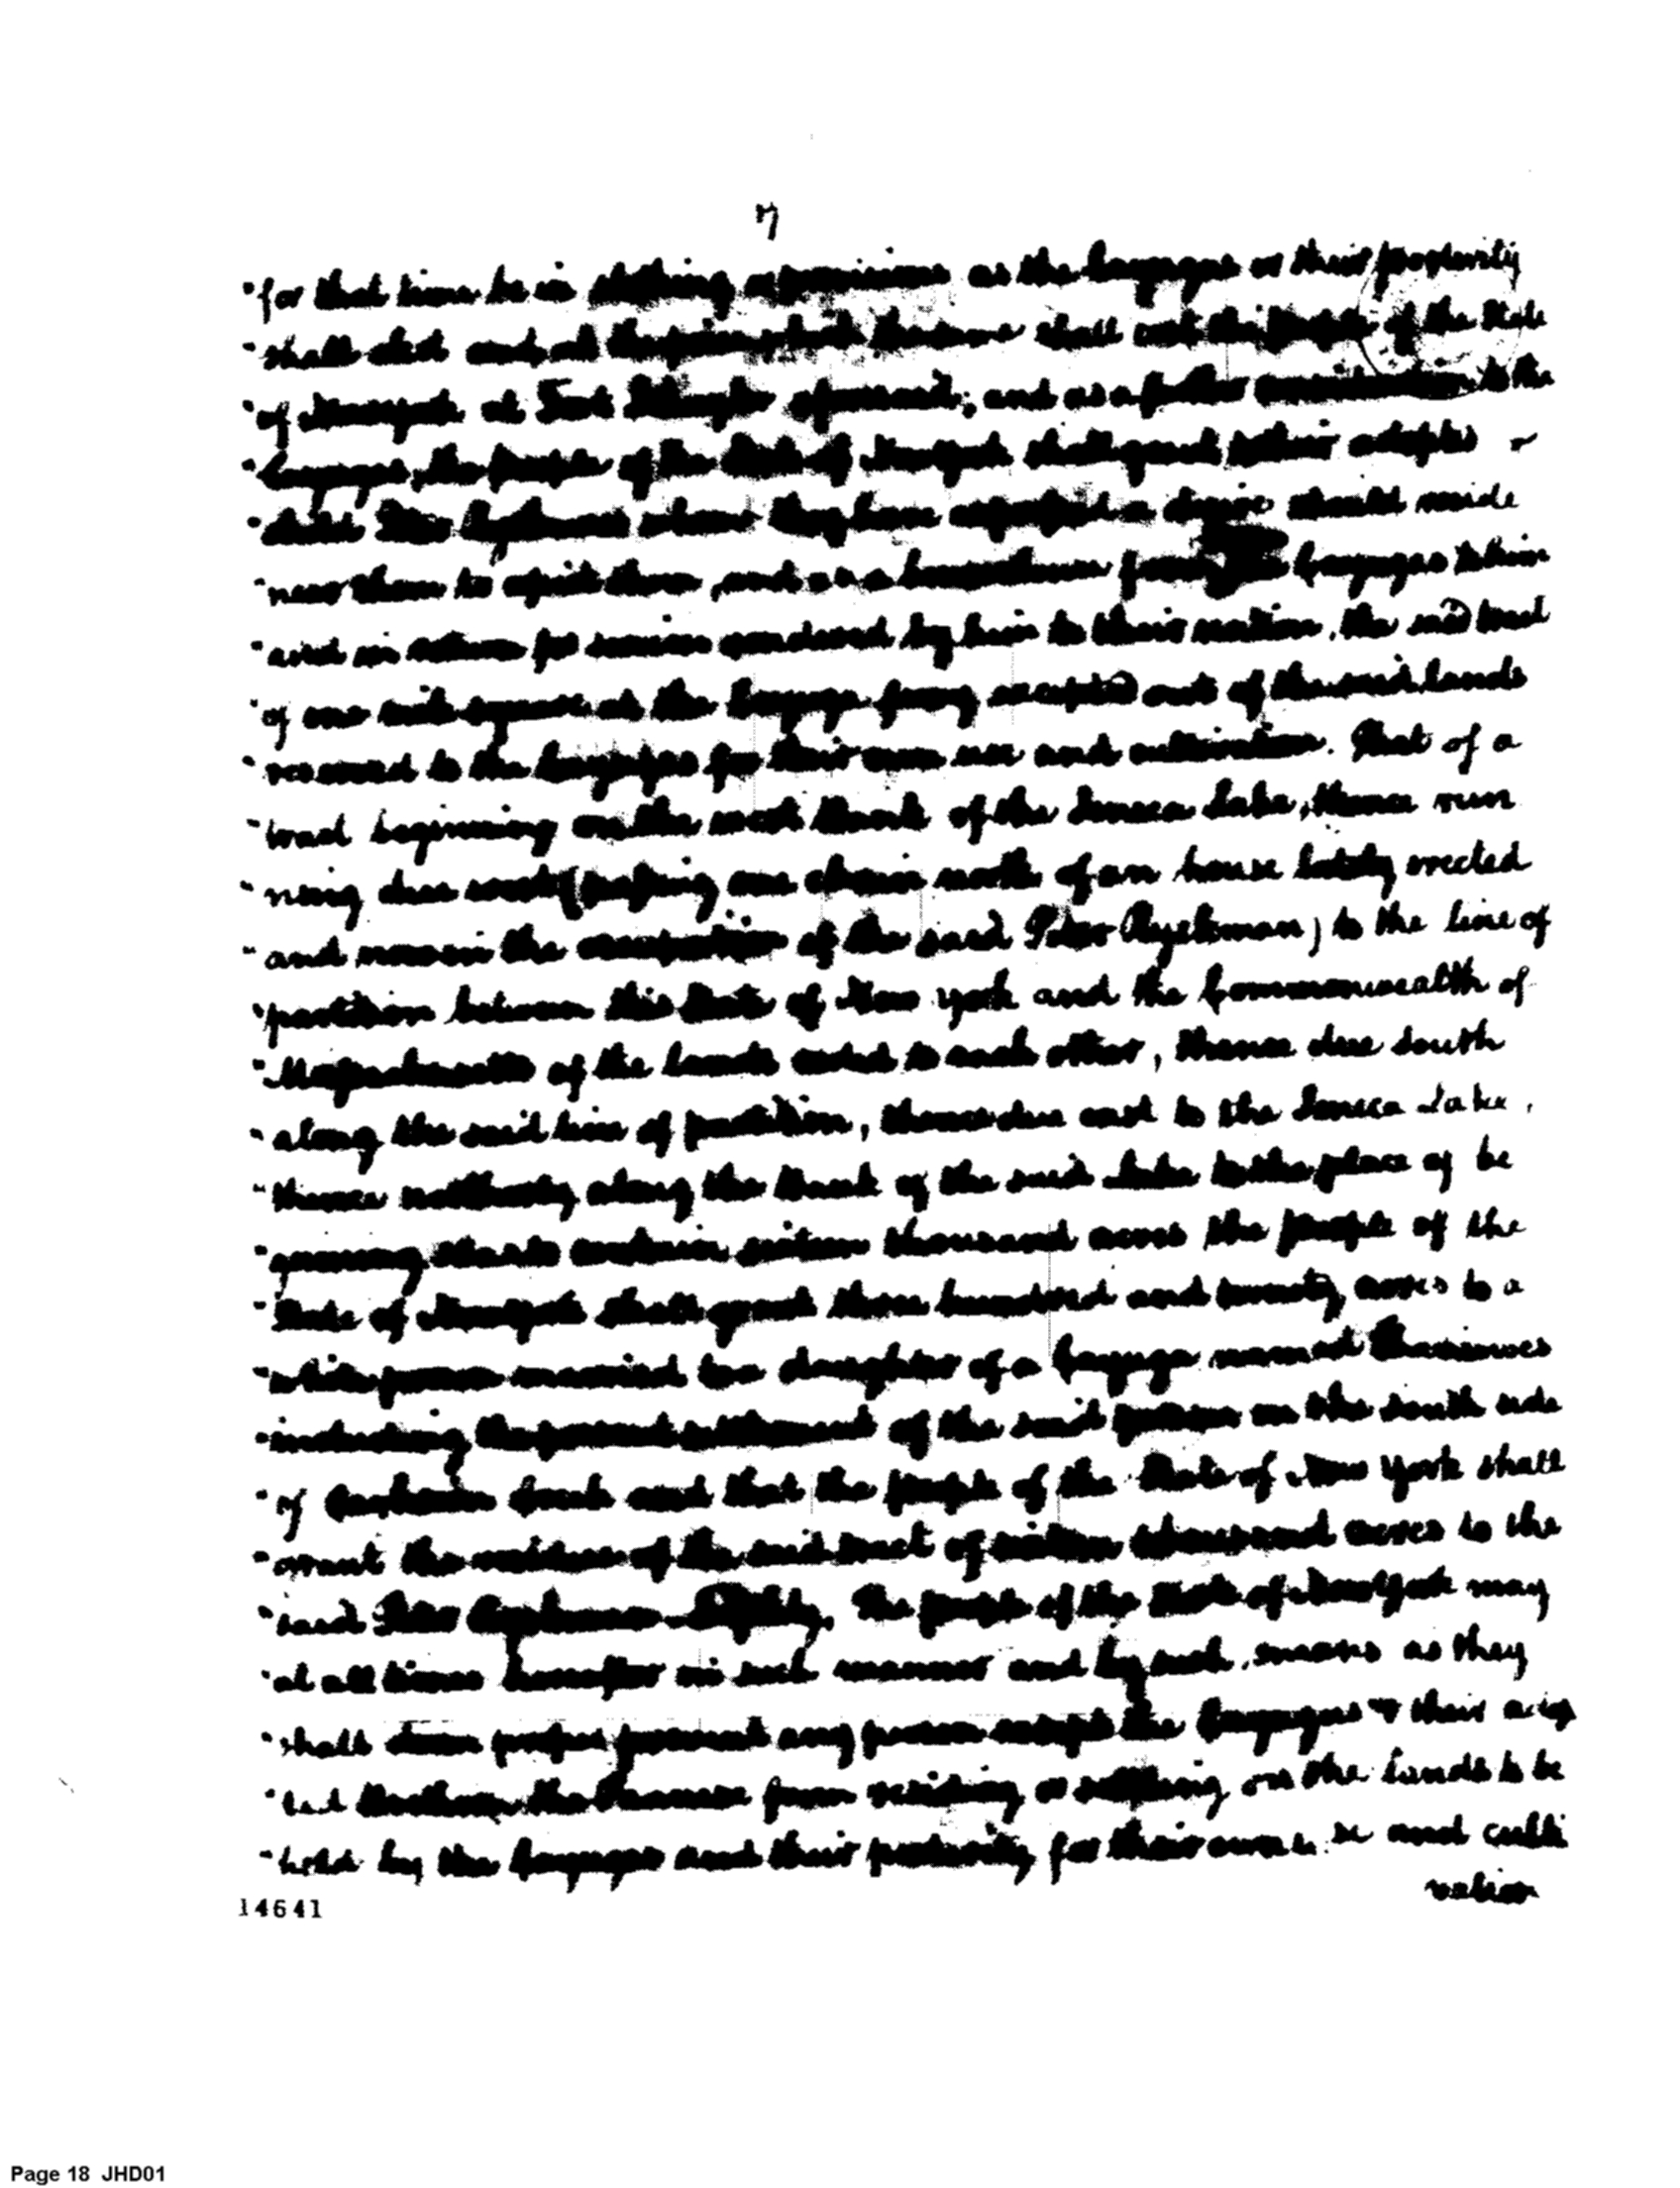 7
"for that time be in clothing or provisions as the Cayugas or their posterity
"shall elect and at the time shall the same shall the people of the State
"of New york at Fort Schuyler aforesaid; and as a further consideration to the
"Cayugas, the people of the State of New york shall grant to their adopted
"child Peter Ryckman whom they have expressed a desire should reside
"near them to assist them and as a benevolence from the Cayugas to him
"and in return for services rendered by him to their nation, the said tract
"of one mile square at the Cayuga ferry excepted out of the said lands
"reserved to the Cayugas for their own use and cultivation. That of a
"tract beginning on the west bank of the Seneca Lake, thence run
"ning due west (passing one chain north of an house lately erected
"and now in the occupation of the said Peter Ryckman) to the line of
"partition between this State of New york and the Commonwealth of
"Massachusetts of the lands ceded to each other, thence due South
"along the said line of partition, thence due east to the Seneca Lake,
"thence northerly along the bank of the said Lake to the place of be
"ginning to contain sixteen thousand acres the people of the
"State of New york shall grant three hundred and twenty acres to a
"white person married to a daughter of a Cayuga named Thaniowes
"including the present settlement of the said person on the south side
"of Cashawa Creek and that the people of the State of New york shall
"grant the residue of the said tract of sixteen thousand acres to the
"said Peter Ryckman The people of the State of New york may
"at all times hereafter in such manner and by such means as they
"shall deem proper prevent any person except the Cayugas & their adop
"ted from residing or settling on the Lands to be
"held by the Cayugas and their posterity for their own use and culti
vation
14641
Page 18 JHD01